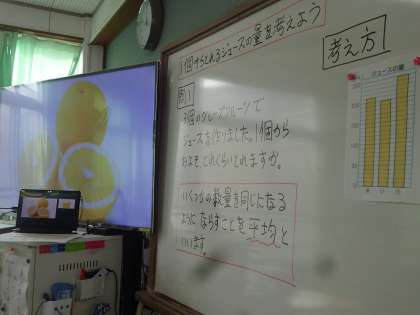 1個からとれるジュースの量を考えよう
考え方
問1
3個のグレープフルーツで
ジュースを作りました。1個から
およそどれくらいとれますか。
いくつかの数量を同じになる
ようにならすことを平均と
いいます。
ジュースの量